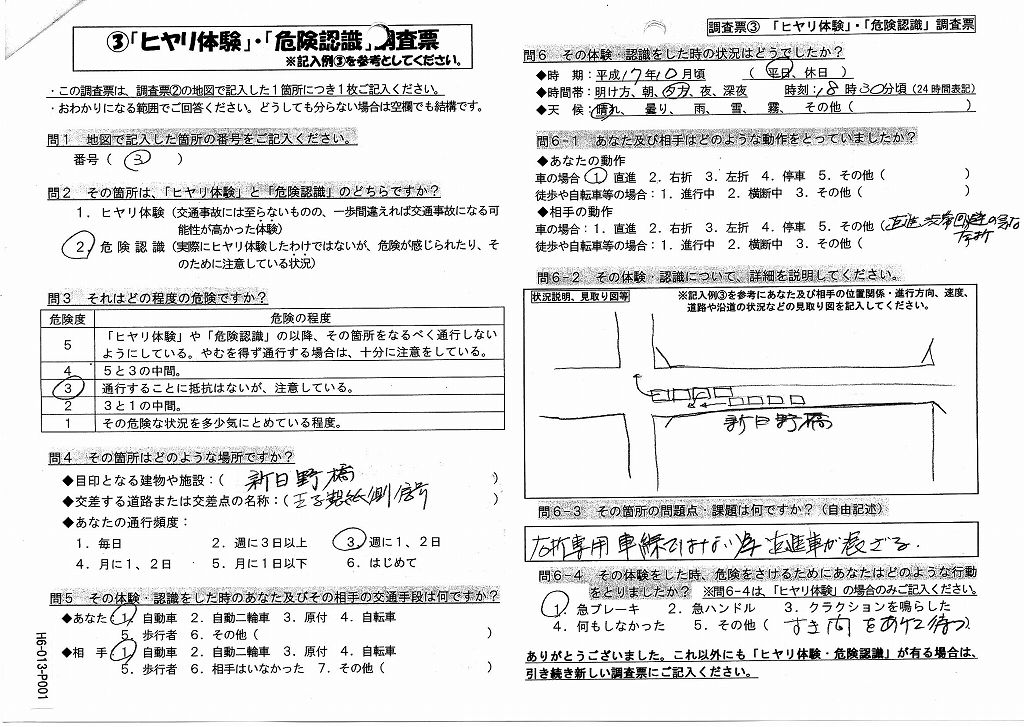 ③「ヒヤリ体験」・「危険認識」調査票
※記入例③を参考としてください。
・この調査票は、調査票②の地図で記入した1箇所につき1枚ご記入ください。
・おわかりになる範囲でご回答ください。どうしても分らない場合は空欄でも結構です。
問1 地図で記入した箇所の番号をご記入ください。
番号（ 3 ）
問2 その箇所は、「ヒヤリ体験」と「危険認識」のどちらですか？
1．ヒヤリ体験（交通事故には至らないものの、一歩間違えれば交通事故になる可
能性が高かった体験）
2．危険認識（実際にヒヤリ体験したわけではないが、危険が感じられたり、そ
のために注意している状況）
問3 それはどの程度の危険ですか？
危険度 危険の程度
5 「ヒヤリ体験」や「危険認識」の以降、その箇所をなるべく通行しない
ようにしている。やむを得ず通行する場合は、十分に注意をしている。
4 5と3の中間。
3 通行することに抵抗はないが、注意している。
2 3と1の中間。
1 その危険な状況を多少気にとめている程度。
問4 その箇所はどのような場所ですか？
◆目印となる建物や施設：（ 新日野橋 ）
◆交差する道路または交差点の名称：（王子製紙側信号 ）
◆あなたの通行頻度：
1．毎日 2．週に3日以上 3．週に1、2日
4．月に1、2日 5．月に1日以下 6．はじめて
問5 その体験・認識をした時のあなた及びその相手の交通手段は何ですか？
◆あなた 1．自動車 2．自動二輪車 3．原付 4．自転車
5．歩行者 6．その他（ ）
◆相 手 1．自動車 2．自動二輪車 3．原付 4．自転車
5．歩行者 6．相手はいなかった 7．その他（ ）
H6-013-P001
調査票③ 「ヒヤリ体験」・「危険認識」調査票
問6 その体験・認識をした時の状況はどうでしたか？
◆時 期：平成17年10月頃 （ 平日、休日 ）
◆時間帯：明け方、朝、夕方、夜、深夜 時刻：18時30分頃（24時間表記）
◆天 候：晴れ、 曇り、 雨、 雪、 霧、 その他（ ）
問6-1 あなた及び相手はどのような動作をとっていましたか？
◆あなたの動作
車の場合：1．直進 2．右折 3．左折 4．停車 5．その他（ ）
徒歩や自転車等の場合：1．進行中 2．横断中 3．その他（ ）
◆相手の動作
車の場合：1．直進 2．右折 3．左折 4．停車 5．その他（直進渋滞回避の為
左折
徒歩や自転車等の場合：1．進行中 2．横断中 3．その他（
問6-2 その体験・認識について、詳細を説明してください。
状況説明、見取り図等 ※記入例③を参考にあなた及び相手の位置関係・進行方向、速度、
道路や沿道の状況などの見取り図を記入してください。
新日野橋
問6-3 その箇所の問題点・課題は何ですか？（自由記述）
右折専用車線ではない為直進車が
問6-4 その体験をした時、危険をさけるためにあなたはどのような行動
をとりましたか？ ※問6-4は、「ヒヤリ体験」の場合のみご記入ください。
1．急ブレーキ 2．急ハンドル 3．クラクションを鳴らした
4．何もしなかった 5．その他（ すき間をあけて待つ）
ありがとうございました。これ以外にも「ヒヤリ体験・危険認識」が有る場合は、
引き続き新しい調査票にご記入ください。